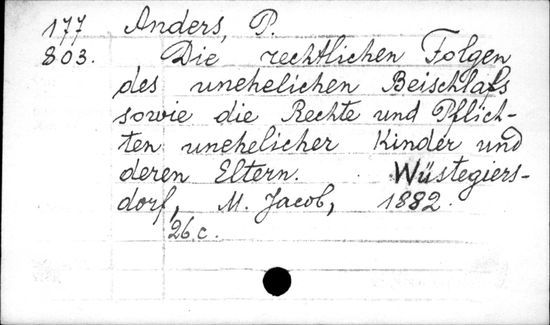 177 Anders, P.
803. Die rechtlichen Folgen
des unehelichen Beischlafs
sowie die Rechte und Pflich-
ten unehelicher Kinder und
deren Eltern. Wüstegiers-
dorf, M. Jacob, 1882.
26 c.